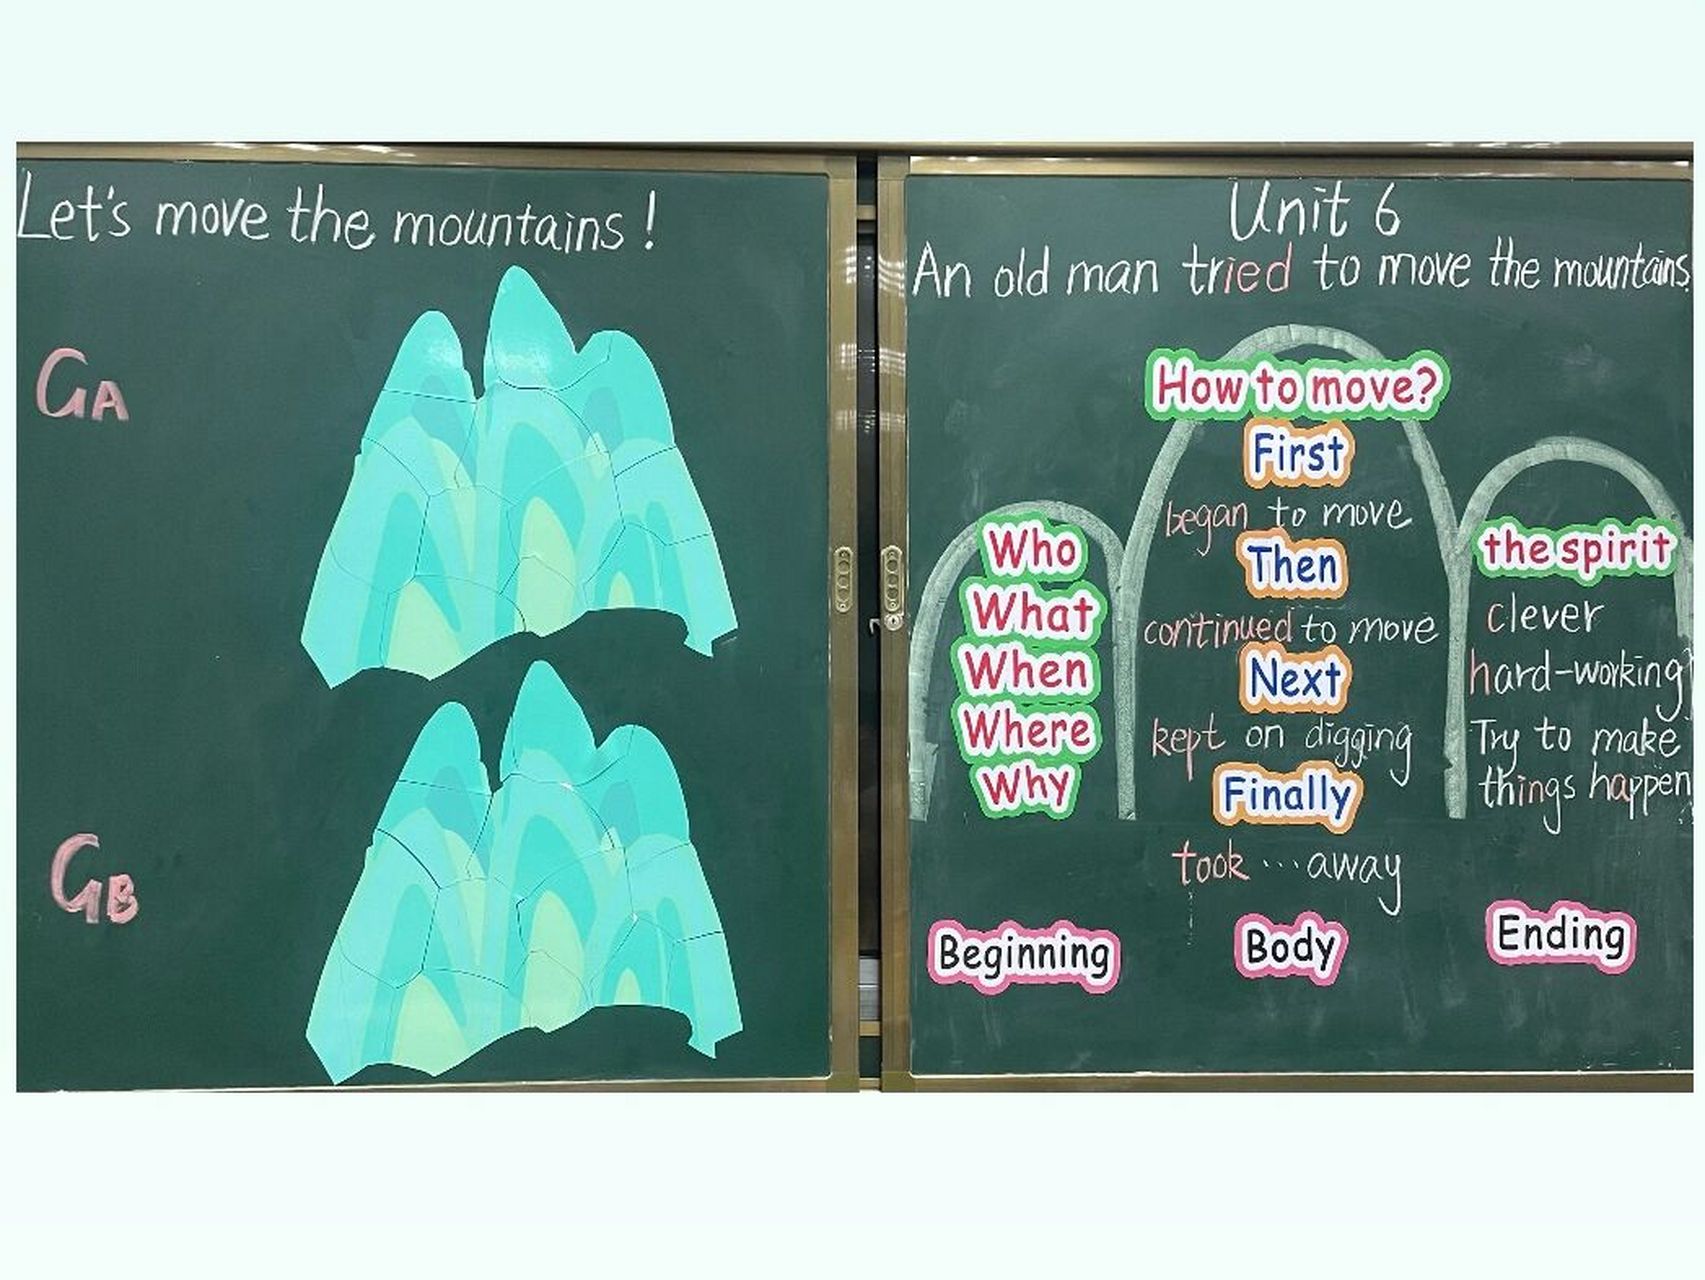 Let's move the mountains!
GA
GB
Unit 6
An old man tried to move the mountains.
Who
What
When
Where
Why
Beginning
How to move?
First
began to move
Then
continued to move
Next
kept on digging
Finally
took ... away
Body
the spirit
clever
hard-working
Try to make
things happen
Ending